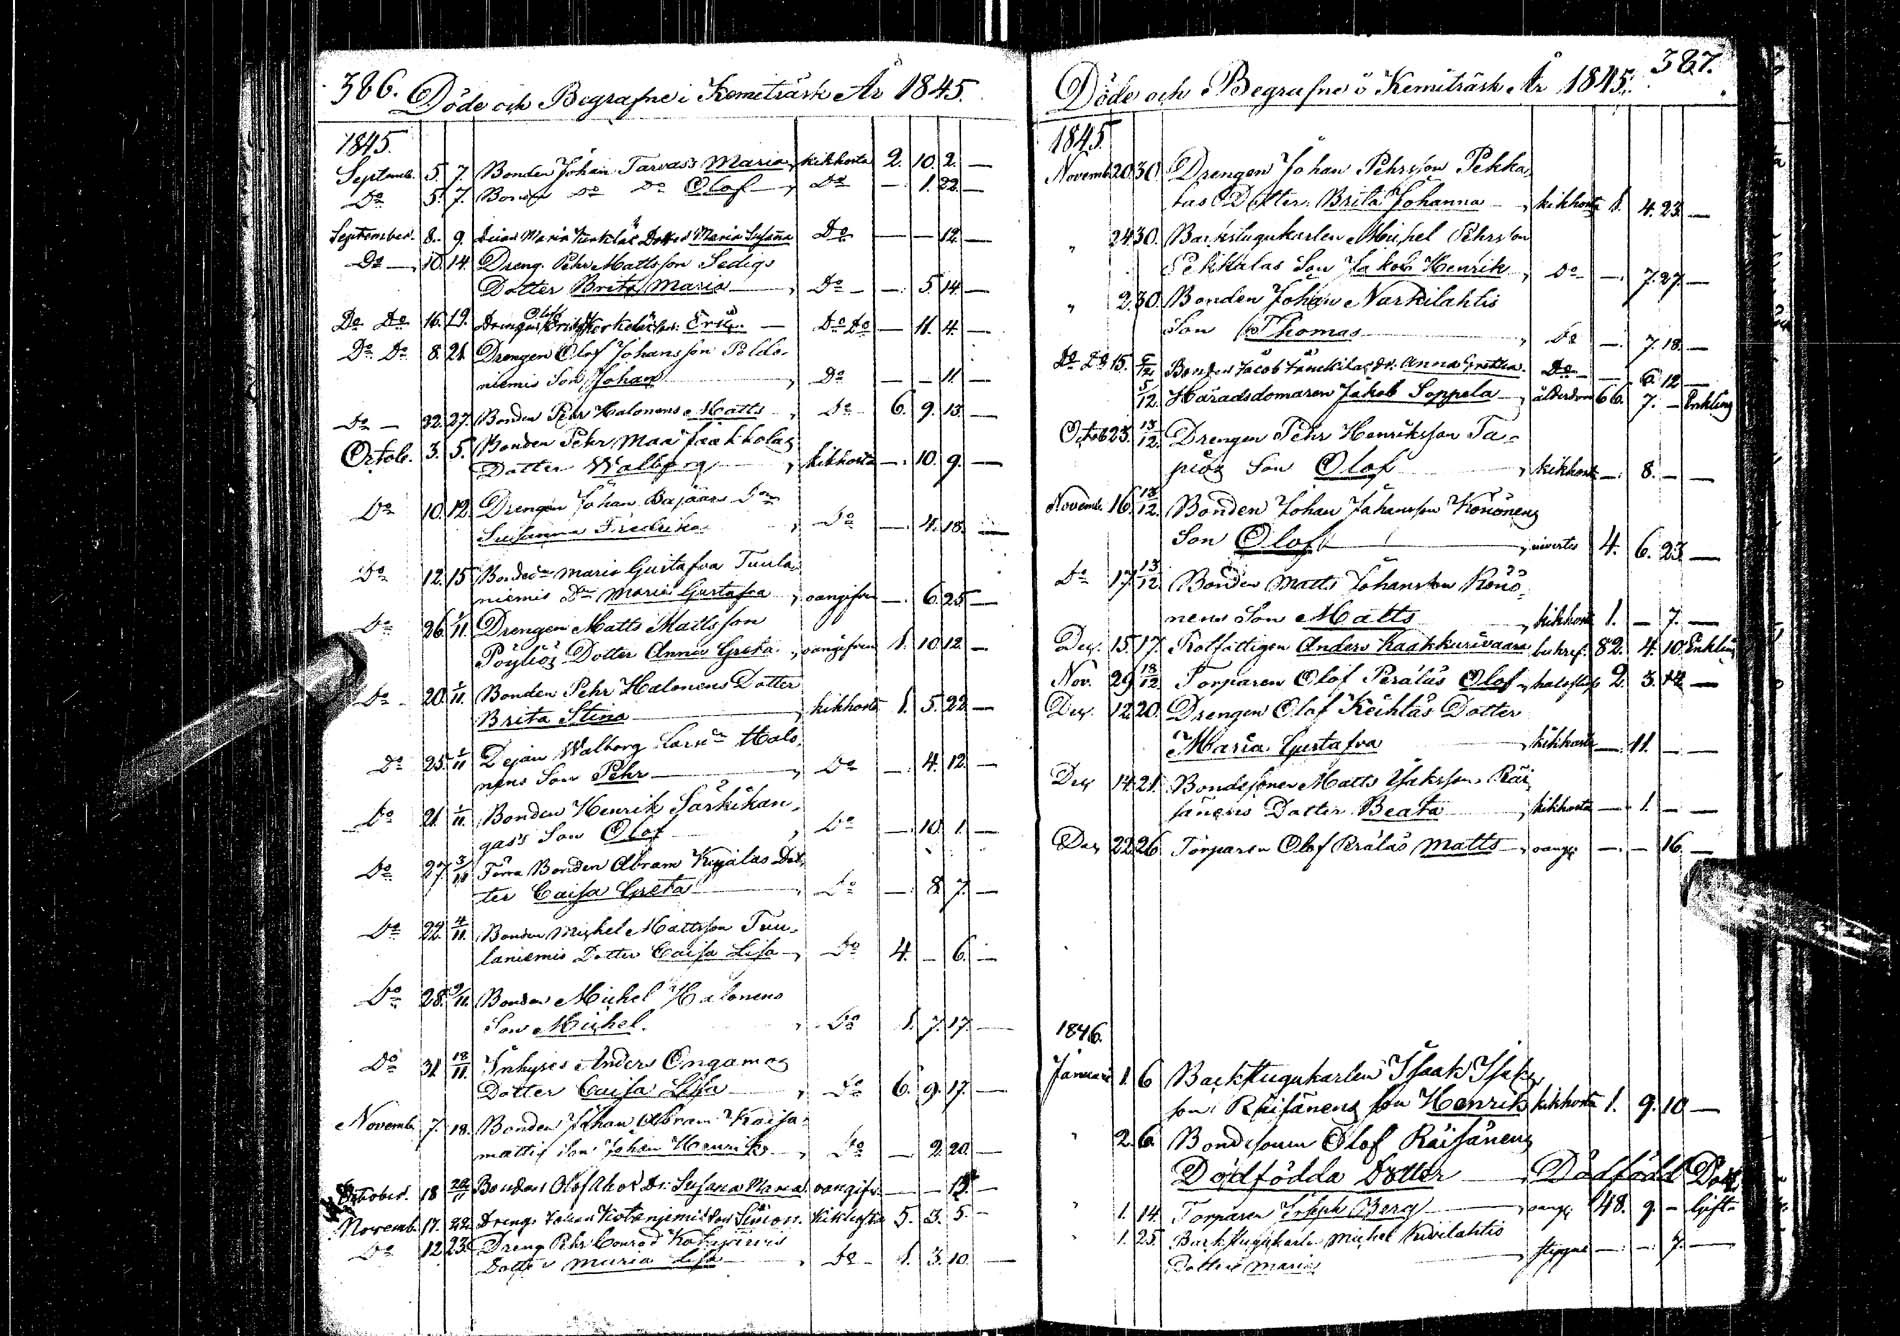 386. Döde och Begrafne i Kemiträsk År 1845.
1845.
Septemb. 5. 7. Bonden Johan Tarvas's Maria kikhosta 2. 10. 2. —
Do 5. 7. Bonden Do Do Olof — Do — 1. 22. —
September. 8. 9. Maria Dotter Maria Susana Do — — 12. —
Do — 10. 14. Dreng. Pehr Mattsson Sedigs
Dotter Brita Maria — Do — — 5. 14 —
Do Do 16. 19. Eric — Do Do — 11. 4. —
Do Do 8. 21. Drengen Olof Johansson Poldo-
niemis Son Johan — Do — — 11. —
Do — 22. 27. Bonden Pehr Halonens Matts — Do — 6. 9. 13. —
Octob. 3. 5. Bonden Pehr Maa
Dotter Walborg — kikhosta — 10. 9. —
Do 10. 12. Drengen Johan Dr
Susanna Fredrika — Do — 4. 18. —
Do 12. 15. Maria Gustafva Tuula-
niemis Dr Maria Gustafva, oangifven — 6. 25 —
Do 26. 1/11 Drengen Matts Mattsson
Pöyliös Dotter Anna Greta, oangifven 1. 10. 12. —
Do 20. 1/11 Bonden Pehr Halonens Dotter
Brita Stina — kikhosta 1. 5. 22. —
Do 25. 1/11 Dejan Walborg Halo-
nens Son Pehr — Do — 4. 12. —
Do 21. 1/11 Bonden Henrik Särkikan-
gas's Son Olof — Do — 10. 1. —
Do 27. 3/11 Förra Bonden Abram Dot-
ter Caisa Greta — Do — 8. 7. —
Do 22. 4/11 Bonden Michel Mattsson Tuu-
laniemis Dotter Caisa Lisa — Do 4. — 6. —
Do 28. 9/11. Bonden Michel Halonens
Son Michel. Do 1. 7. 17. —
Do 31. 18/11. Inhyses Anders Ongamos
Dotter Caisa Lisa — Do 6. 9. 17. —
Novemb. 7. 18. Bonden Johan Abram Kaisa-
mattis Son Johan Henrik — Do — 2. 20. —
October. 18 Bonden Olof Ahos Dr. Susana Maria. oangifv. — —
Novemb. 17. 22. Dreng. Johan Son Simon. kikhosta 5. 3. 5. —
Do 12. 23. Dreng Pehr Conrad
Dotter Maria Lisa — Do — 1. 3. 10. —
Döde och Begrafne i Kemiträsk År 1845. 387.
1845.
Novemb. 20. 30. Drengen Johan Pehrsson Pekka-
las Dotter Brita Johanna — kikhosta 1. 4. 23. —
" 24. 30. Backstugukarlen Michel Pehrsson
Pekkalas Son Jakob Henrik — Do — 7. 27. —
" 2. 30. Bonden Johan Narkilahtis
Son Thomas — Do — 7. 18. —
Do Do 15. Bonden Jacob Dr. Anna Gretha — Do — 6. 12 —
5/12. Häradsdomaren Jakob Soppela — ålderdom 66. 7. — Enkling
Octob. 23. 13/12. Drengen Pehr Henriksson Ta-
piös Son Olof — kikhosta — 8. — —
Novemb. 16. 13/12. Bonden Johan Johansson Könönens
Son Olof — 4. 6. 23 —
Do 17. 13/12. Bonden Matts Johansson Könö-
nens Son Matts — kikhosta 1. — 7. —
Dec. 15. 17. Rotfattigen Anders Kaakkurivaara 82. 4. 10. Enkling
Nov. 29. 18/12. Torparen Olof Peräläs Olof — halsfluss 2. 3. —
Dec. 12. 20. Drengen Olof Keihläs Dotter
Maria Gustafva — kikhosta — 11. — —
Dec. 14. 21. Bondesonen Matts Isaksson Räi-
sänens Dotter Beata — kikhosta — 1. — —
Dec. 22. 26. Torparen Olof Peräläs Matts — oangif — — 16. —
1846.
Januari 1. 6 Backstugukarlen Isaak Isaks-
son Räisänens son Henrik kikhosta 1. 9. 10 —
" 2. 6. Bondesonen Olof Räisänens
Dödfödda Dotter — Dödfödd
" 1. 14. Torparen Joseph Berg — oangif 48. 9. — Gift
" 1. 25 Backstugukarlen Michel Kivilahtis
Dotter Maria — — — 7. —